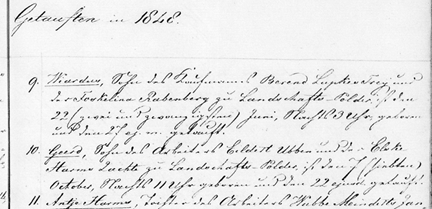 Getauften in 1848.
9. Wiardus, Sohn des Kaufmanns Berend Lupkes Frey und
der Foskelina Rabenberg zu Landschafts-Polder, ist den
22 (zwei und zwanzigsten) Juni, Nachts 3 Uhr, geboren
und den 2 ej. m. getauft.
10. Geerd, Sohn des Arbeiters Eildert Ubben und der Elske
Harms Zackte zu Landschafts-Polder, ist den 7 (siebten)
October, Nachts 11 Uhr geboren und den 22 ejusd. getauft.
11. Antje Harms, Tochter des Arbeiters Wübbe Meinderts Jan